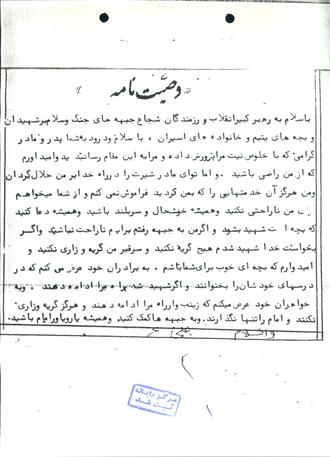 « وصیّت نامه »
باسلام به رهبر کبیر انقلاب و رزمندگان شجاع جبهه های جنگ وسلام برشهیدان
و بچه های یتیم و خانواده های اسیران ، با سلام و درود به شما پدر و مادر
گرامی که با خلوص نیت مرا پرورش داده و مرا به این مقام رسانید ید وامیدوارم
که از من راضی باشید . و اما تو ای مادر شیرت را در راه خدا بر من حلال گردان
ومن هرگز آن خدمتهایی را که بمن کردید فراموش نمی کنم و از شما میخواهم
من ناراحتی نکنید وهمیشه خوشحال و سربلند باشید وهمیشه دعا کنید
که بچه ات شهید بشود و اگر من به جبهه رفتم برایم ناراحت نباشید واگر
بخواست خدا شهید شدم هیچ گریه نکنید و سرقبر من گریه و زاری نکنید و
امید وارم که بچه ای خوب برای شما باشم . به برادران خود عرض می کنم که در
درسهای خودشان را بخوانند و اگر شهید شدم راه مرا ادامه دهند . وبه
خواهران خود عرض میکنم که زینب وار راه مرا ادامه دهند و هرگز گریه وزاری
نکنند و امام را تنها نگذارند. وبه جبهه ها کمک کنید. وهمیشه یار ویاور امام باشید.
والسلام
مرکز دایای
ثبت شد